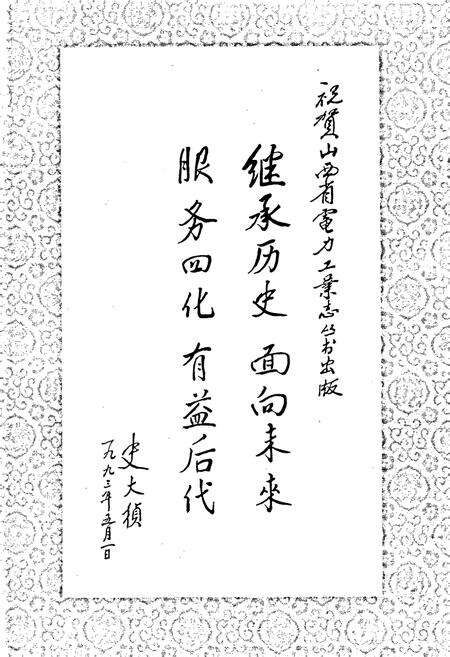 祝賀山西省電力工業志丛书出版
继承历史 面向未来
服务四化 有益后代
史大桢
一九九三年五月一日